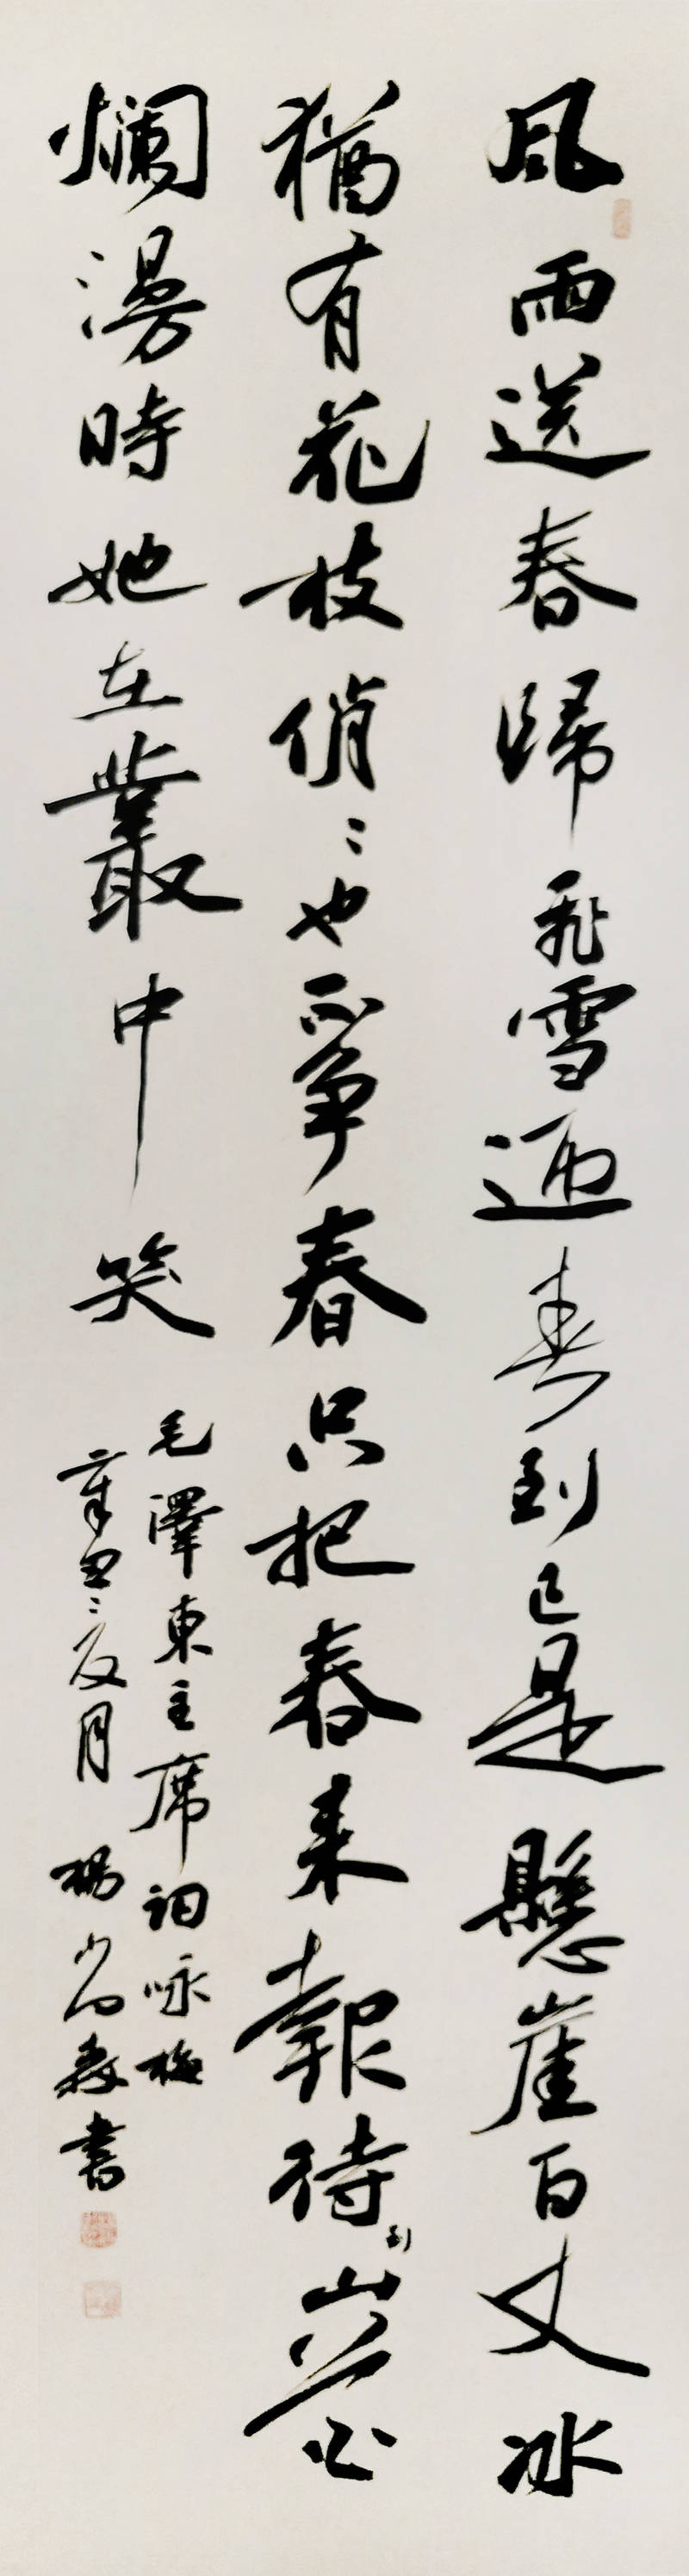 風雨送春歸飛雪迎春到已是懸崖百丈冰
猶有花枝俏〻也不爭春只把春來報待到山花
爛漫時她在叢中笑
毛澤東主席詞咏梅
辛丑夏月 楊 書